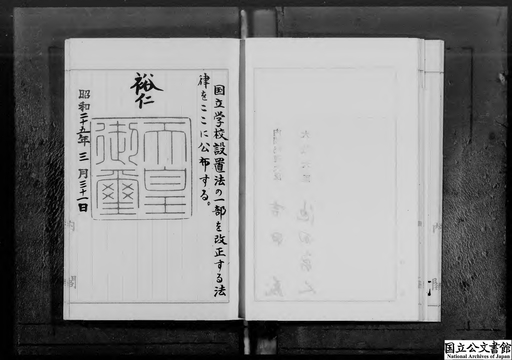 国立学校設置法の一部を改正する法
律をここに公布する。
裕仁
天皇
御璽
昭和二十五年三月三十一日
内閣
国立公文書館
National Archives of Japan